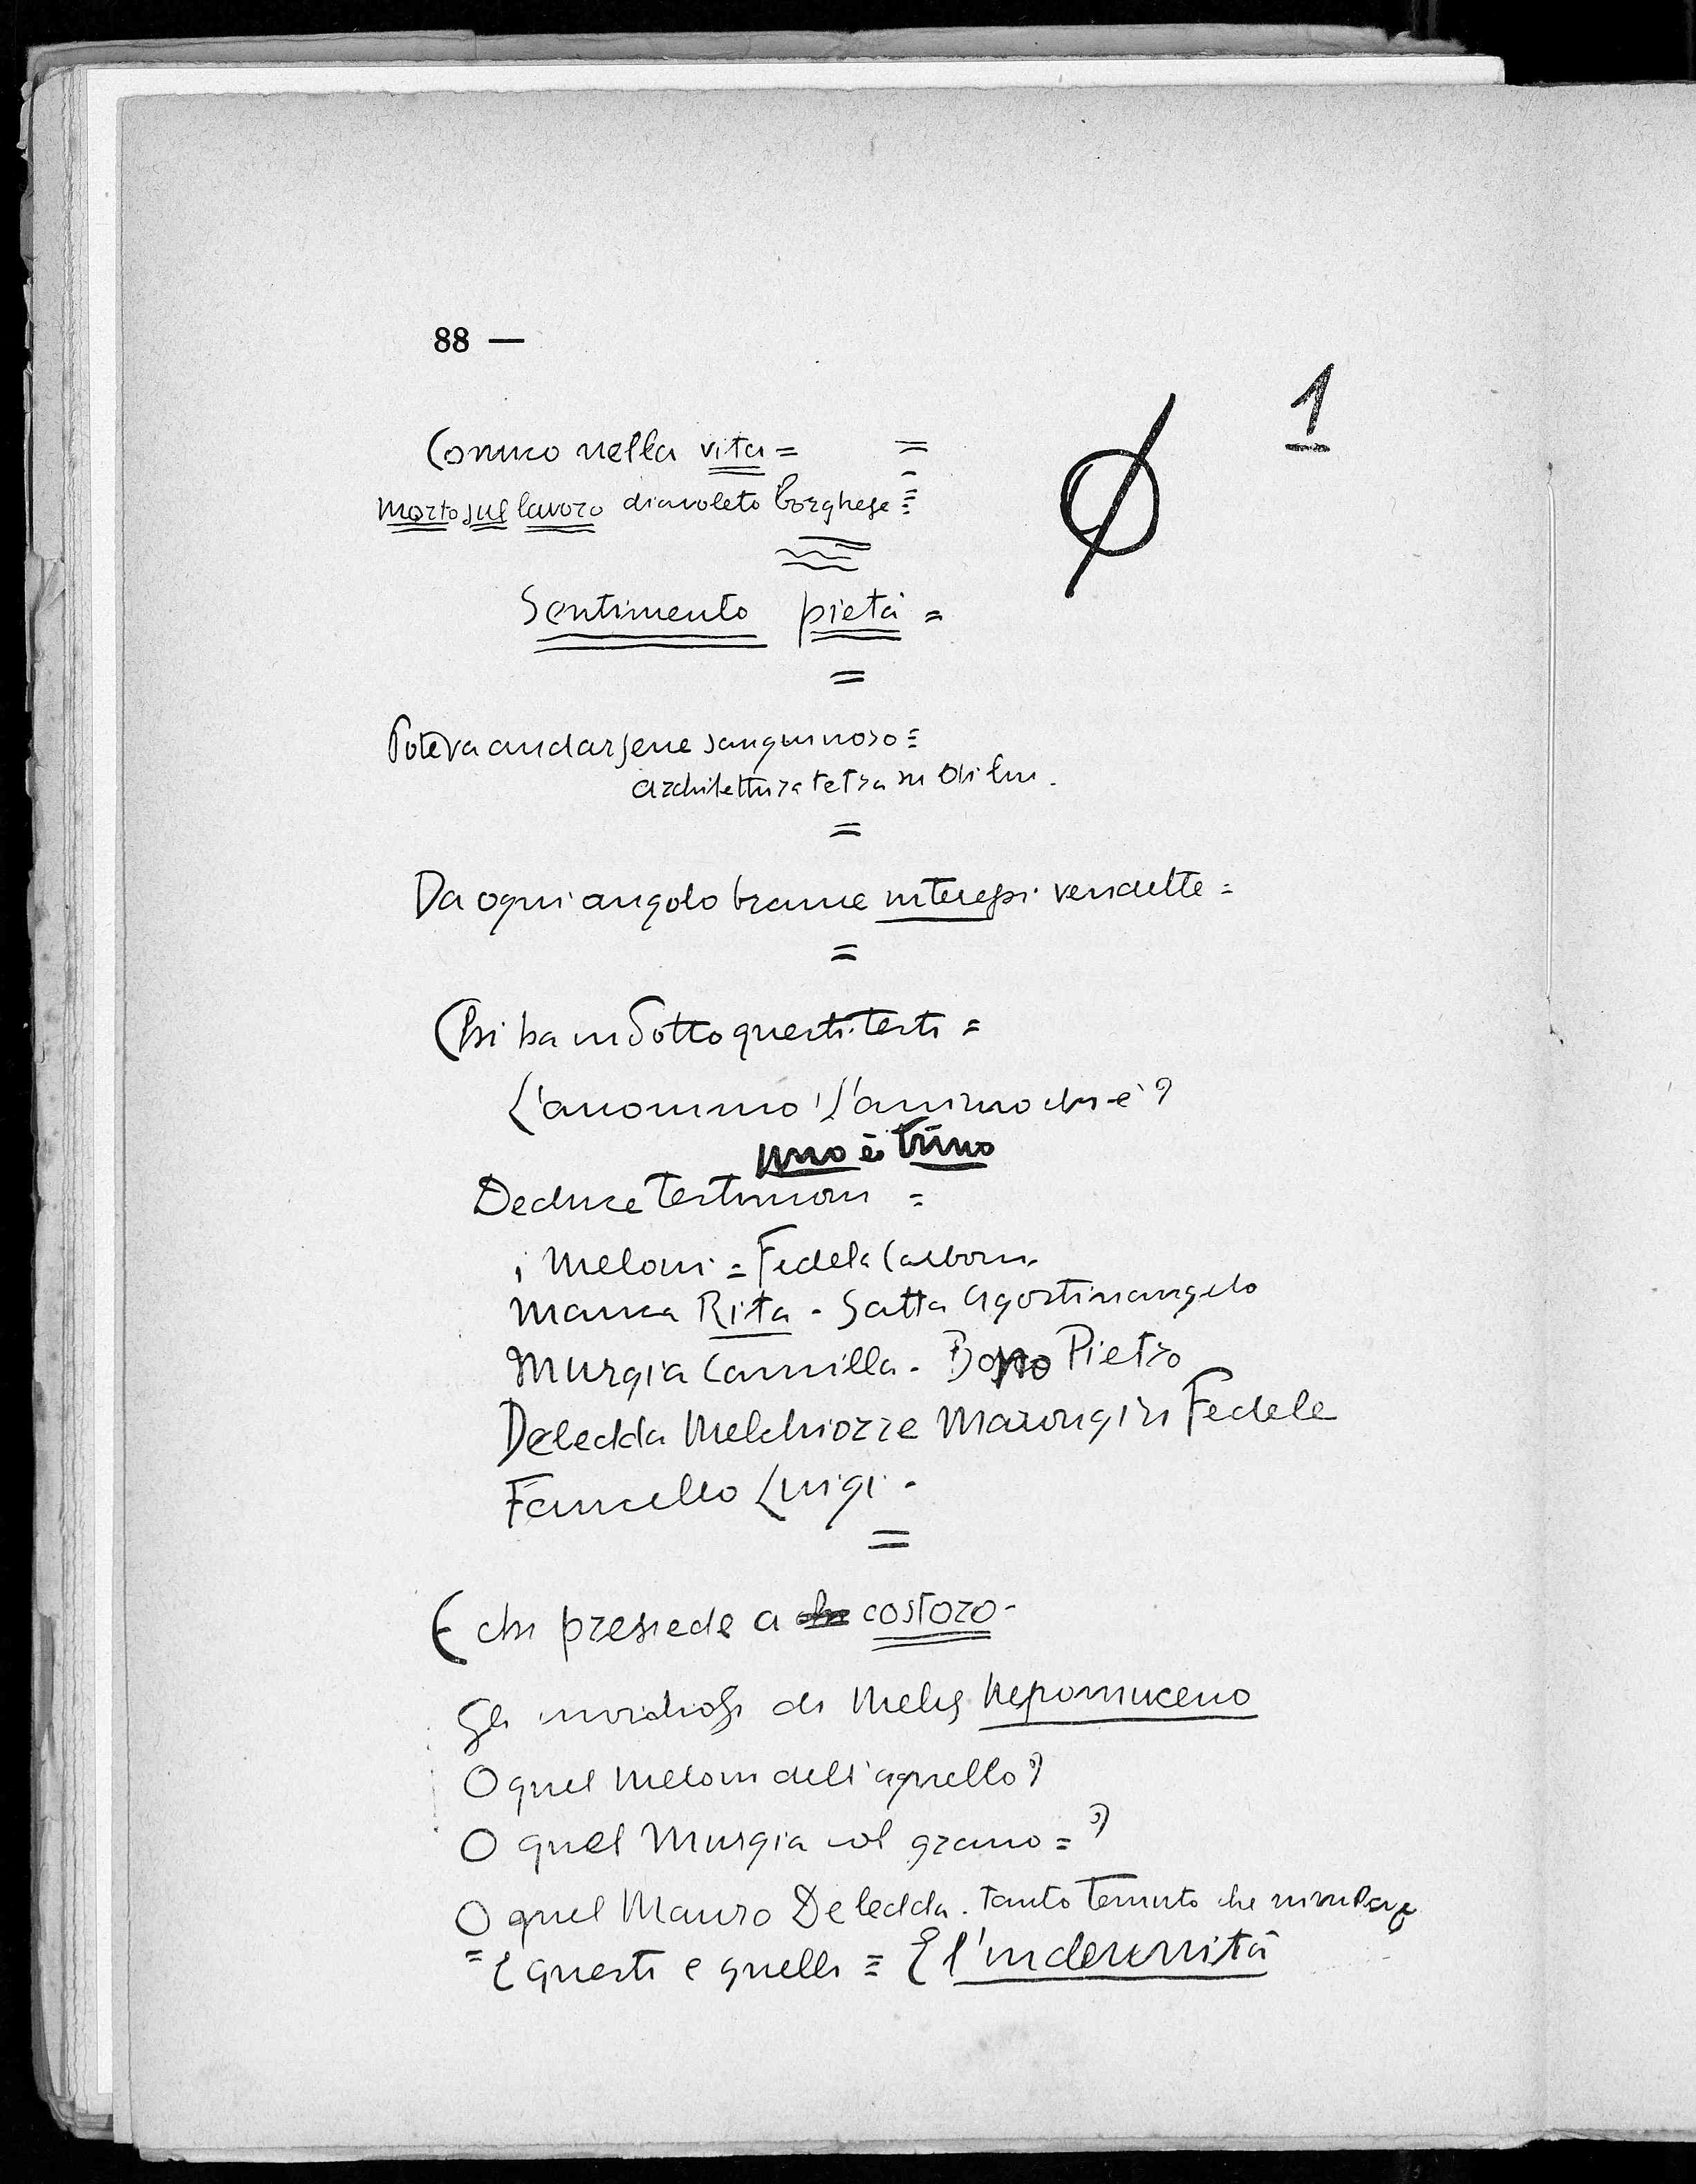 88 —
1
Comico nella vita =
morto sul lavoro diavoleto borghese =
Sentimento pietà =
=
Poteva andarsene sanguinoso =
architettura tetra su
=
Da ogni angolo brame interessi vendette =
=
Chi ha indotto questi testi =
L'anonimo! L'anonimo chi è?
uno è trino
Deduce testimoni =
i Meloni = Fedela Carboni
Manca Rita - Satta Agostinangelo
Murgia Camilla - Pietro
Deledda Melchiorre Marongiu Fedele
Fancello Luigi -
=
E chi presiede a costoro -
Gli invidiosi di Melis Nepomuceno
O quel Meloni dell'agnello?
O quel Murgia col grano = ?
O quel Mauro Deledda. tanto temuto che
= E questi e quelli = E l'indennità